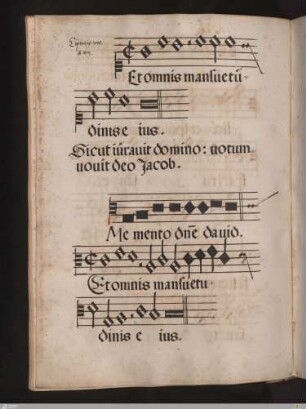 Et omnis mansuetū-
dinis e ius.
Sicut iūrauit domino: uotum
uouit deo Jacob.
Me mento dn̄e dauid.
Et omnis mansuetu
dinis e ius.